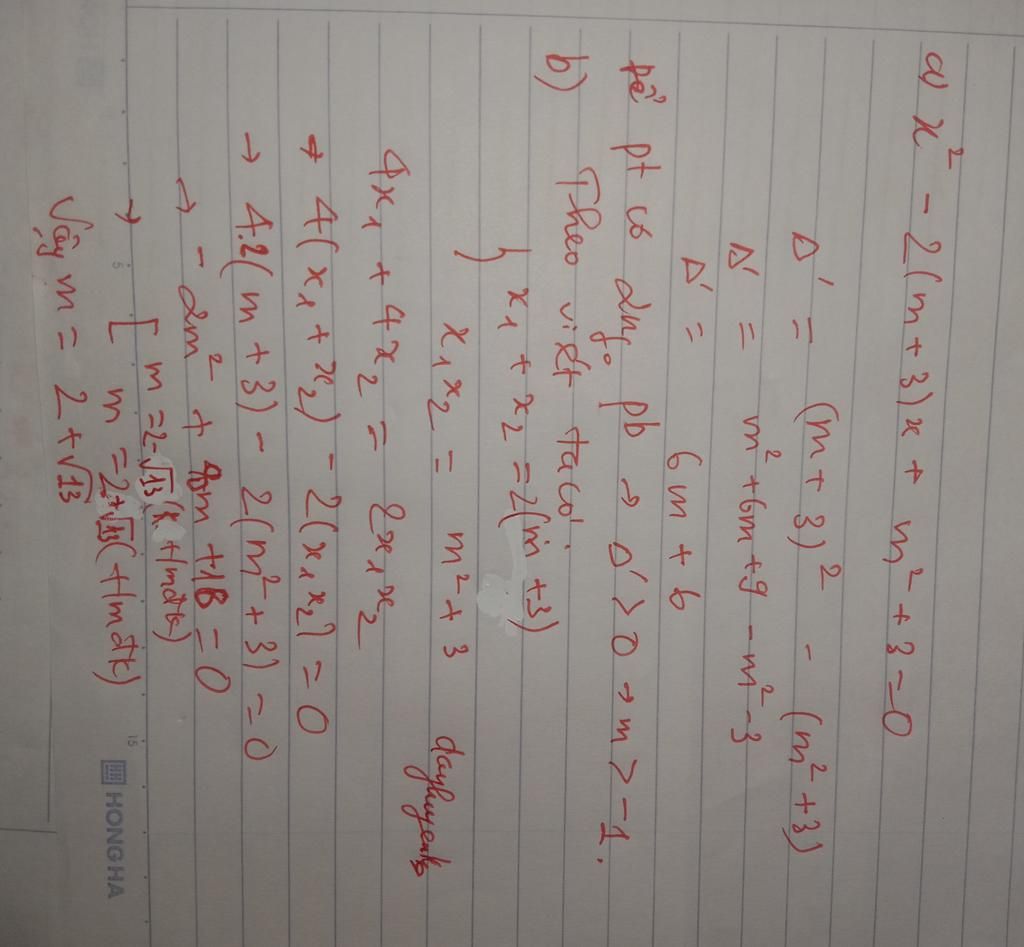 a) x² - 2(m + 3)x + m² + 3 = 0
Δ' = (m + 3)² - (m² + 3)
Δ' = m² + 6m + 9 - m² - 3
Δ' = 6m + 6
Để pt có 2ng₀ pb → Δ' > 0 → m > -1.
b) Theo viét ta có:
{ x₁ + x₂ = 2(m + 3)
x₁x₂ = m² + 3
dayhuyenb
4x₁ + 4x₂ = 2x₁x₂
→ 4(x₁ + x₂) - 2(x₁x₂) = 0
→ 4.2(m + 3) - 2(m² + 3) = 0
→ - 2m² + 8m + 18 = 0
→ [ m = 2-√13 (k +/mđk)
m = 2+√13 (+/mđk)
Vậy m = 2 + √13
5
15
HONG HA